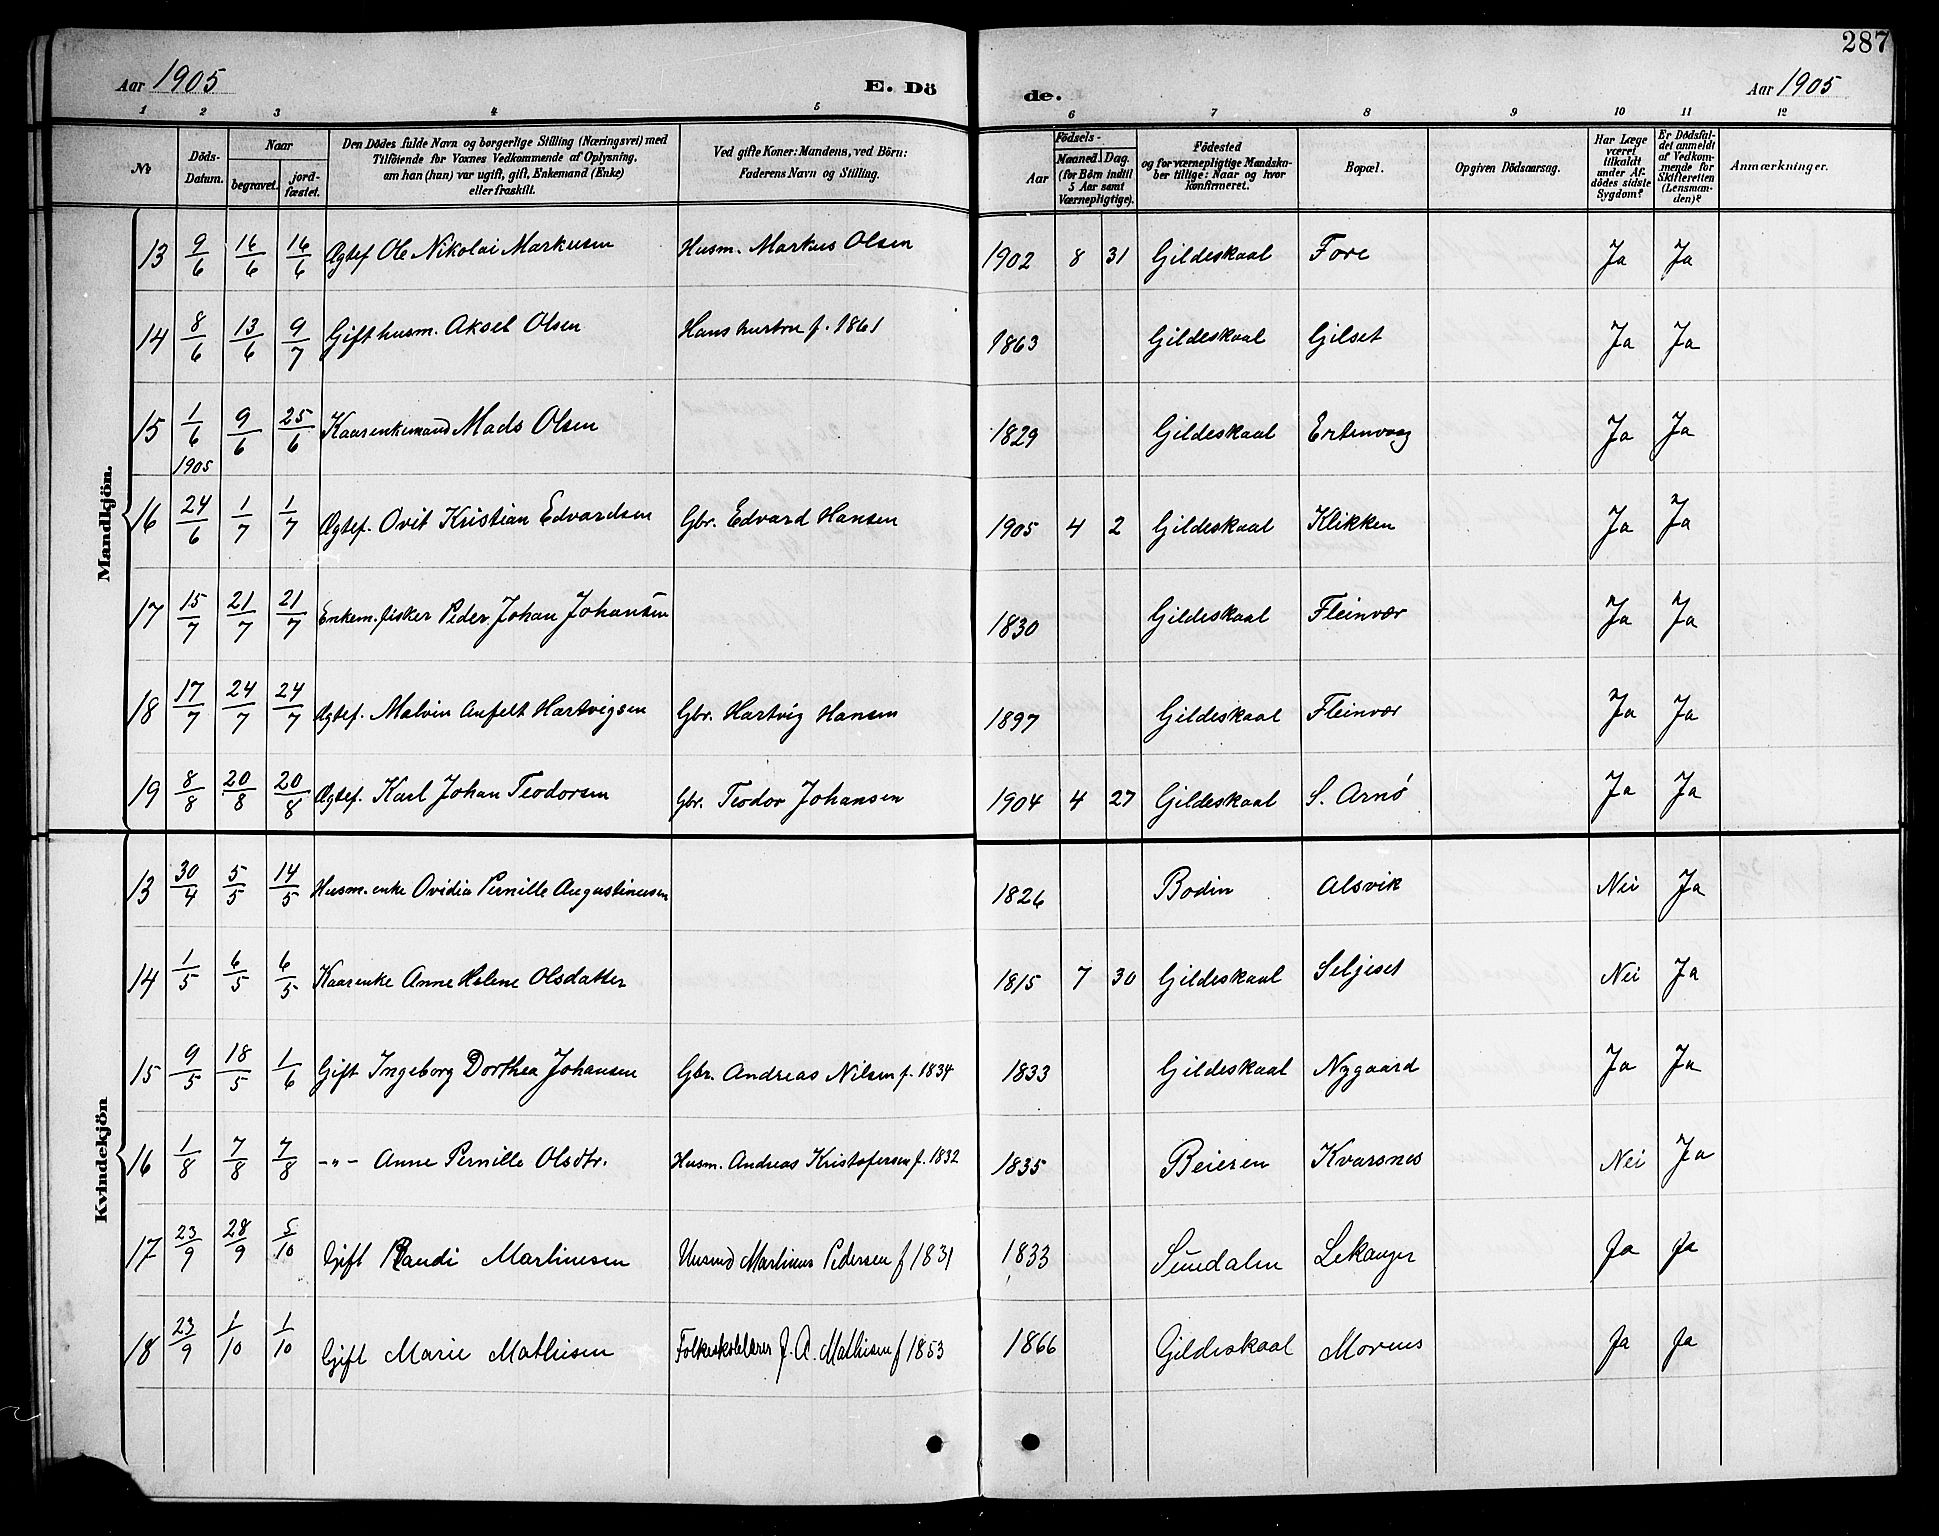 287
Aar 1905 E. Dö de. Aar 1905
1 2 3 4 5 6 7 8 9 10 11 12
Nr
Döds-
Datum.
Naar
begravet.
jord-
fæstet.
Den Dödes fulde Navn og borgerlige Stilling (Næringsvei) med
Tilföiende for Voxnes Vedkommende af Oplysning,
om han (hun) var ugift, gift, Enkemand (Enke)
eller fraskilt.
Ved gifte Koner: Mandens, ved Börn:
Faderens Navn og Stilling.
Födsels-
Aar
Maaned. Dag.
(for Börn indtil
5 Aar samt
Værnepligtige).
Födested
og for værnepligtige Mandska-
ber tillige: Naar og hvor
konfirmeret.
Bopæl.
Opgiven Dödsaarsag.
Har Læge
været
tilkaldt
under Af-
dödes sidste
Sygdom?
Er Dödsfal-
det anmeldt
af Vedkom-
mende for
Skifteretten
(Lensman-
den)?
Anmærkninger.
Mandkjön.
13 9/6 16/6 16/6 Ægtef. Ole Nikolai Markusen Husm. Markus Olsen 1902 8 31 Gildeskaal Fore Ja Ja
14 8/6 13/6 9/7 Gift husm. Aksel Olsen Hans hustru f. 1861 1863 Gildeskaal Gilset Ja Ja
15 1/6 9/6 25/6 Kaarenkemand Mads Olsen 1829 Gildeskaal Ertenvaag Ja Ja
1905
16 24/6 1/7 1/7 Ægtef. Ovit Kristian Edvardsen Gbr. Edvard Hansen 1905 4 2 Gildeskaal Klikken Ja Ja
17 15/7 21/7 21/7 Enkem. fisker Peder Johan Johansen 1830 Gildeskaal Fleinvær Ja Ja
18 17/7 24/7 24/7 Ægtef. Malvin Anfelt Hartvigsen Gbr. Hartvig Hansen 1897 Gildeskaal Fleinvær Ja Ja
19 8/8 20/8 20/8 Ægtef. Karl Johan Teodorsen Gbr. Teodor Johansen 1904 4 27 Gildeskaal S. Arnö Ja Ja
Kvindekjön
13 30/4 5/5 14/5 Husm. enke Ovidia Pernille Augustinusen 1826 Bodin Alsvik Nei Ja
14 1/5 6/5 6/5 Kaarenke Anne Helene Olsdatter 1815 7 30 Gildeskaal Seljeset Nei Ja
15 9/5 18/5 1/6 Gift Ingeborg Dorthea Johansen Gbr. Andreas Nilsen f. 1834 1833 Gildeskaal Nygaard Ja Ja
16 1/8 7/8 7/8 -"- Anne Pernille Olsdtr. Husm. Andreas Kristofersen f. 1832 1835 Beieren Kvarsnes Nei Ja
17 23/9 28/9 5/10 Gift Randi Martinusen Martinus Pedersen f 1831 1833 Sundalen Lekanger Ja Ja
18 23/9 1/10 1/10 Gift Marie Mathisen Folkeskolelærer J. A. Mathisen f 1853 1866 Gildeskaal Morsnes Ja Ja